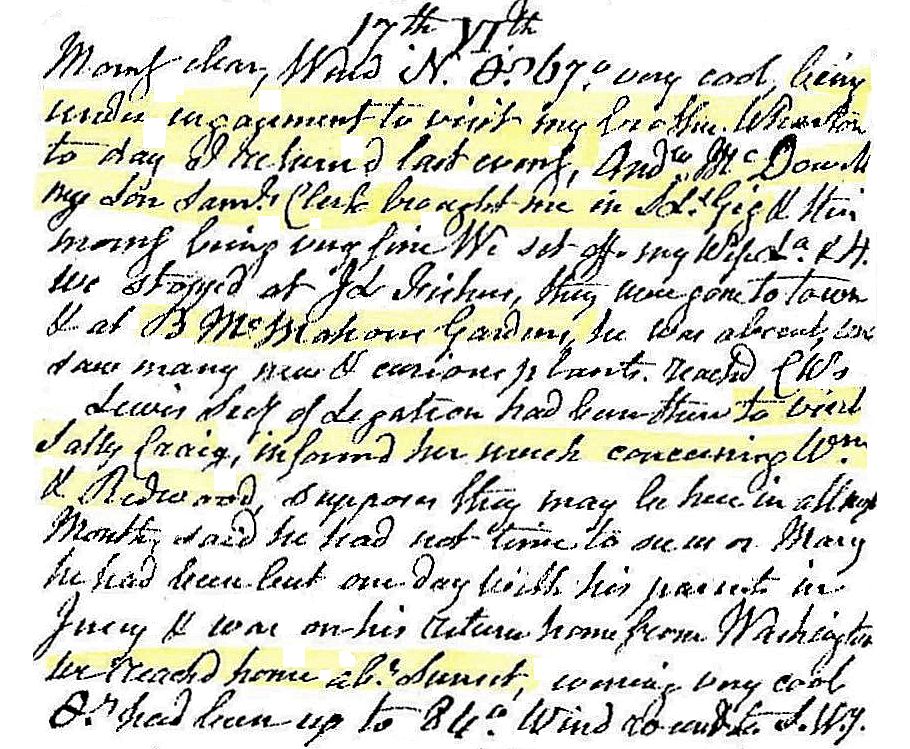 17th VIth
Morng clear, Wind N. 67.° very cool, being
under engagement to visit my brother Wharton
to day I returnd last eveng, Andw Mc Dowell
my Son Saml. Clerk brought me in Gig & this
morng being very fine We set off. my Wife La. & H.
we stopped at Js Fishers, they were gone to town
& at B McMahons Gardens, he was absent, we
saw many new & curious plants. reachd CWs
Lewis Secy of Legation had been there to visit
Sally Craig, informd her much concerning Wm
& Redwood, supposes they may be here in all next
Month, said he had not time to see us or Mary
he had been but one day with his parents in
Jersey & was on his return home from Washington
we reachd home abt. Sunset, evening very cool
had been up to 84° Wind round to S.Wy.